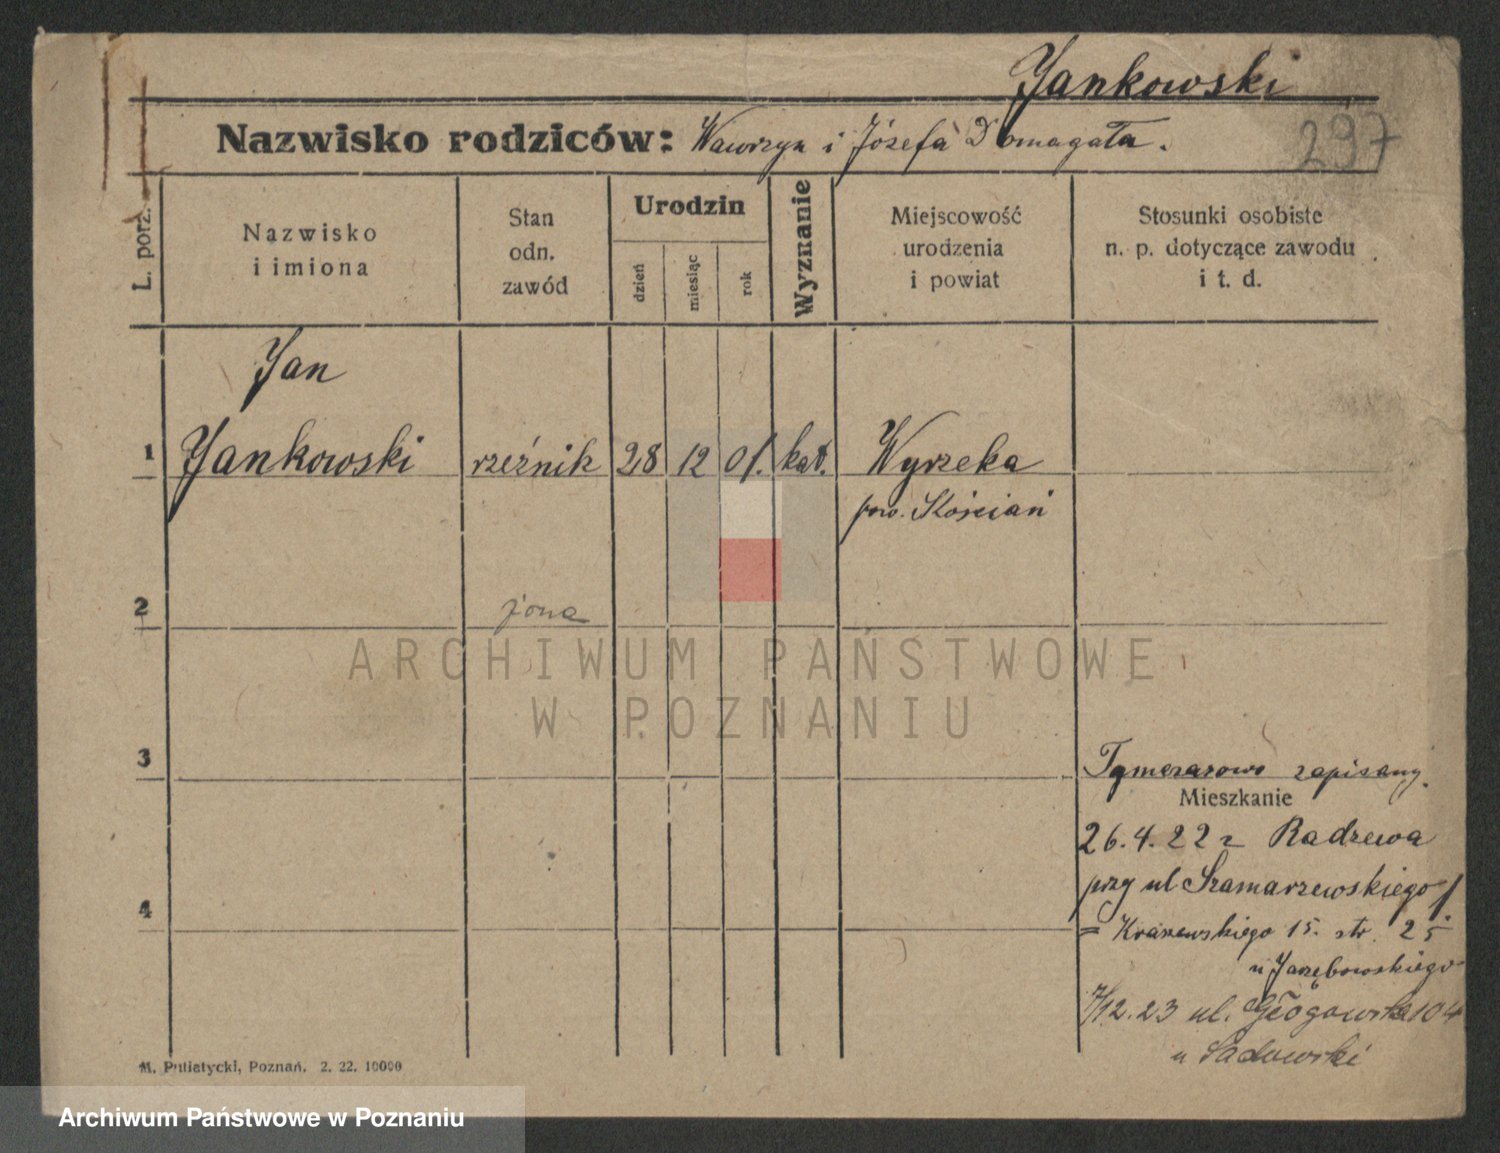 Jankowski
Nazwisko rodziców: Wawrzyn i Józefa Domagała.
297
L. porz.
Nazwisko
i imiona
Stan
odn.
zawód
Urodzin
dzień
miesiąc
rok
Wyznanie
Miejscowość
urodzenia
i powiat
Stosunki osobiste
n. p. dotyczące zawodu
i t. d.
Jan
1 Jankowski rzeźnik 28 12 01. kat. Wyrzeka
pow. Kościań
2 żona
3
zapisany.
Mieszkanie
26.4.22 z Radzewa
przy ul Szamarzewskiego
4
= Kraszewskiego 15. str. 25
u Jarzębowskiego
7/12.23 ul. Głogowska 104
u Sadowski
M. Putiatycki, Poznań. 2. 22. 10000
ARCHIWUM PAŃSTWOWE
W POZNANIU
Archiwum Państwowe w Poznaniu